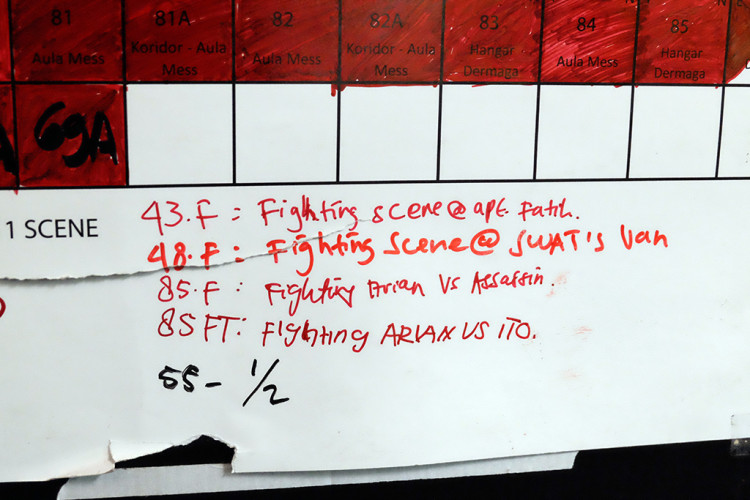 81 81A 82 82A 83 84 85
Aula Mess Koridor - Aula Mess Aula Mess Koridor - Aula Mess Hangar Dermaga Aula Mess Hangar Dermaga
69A
1 SCENE
43.F : Fighting scene @ apt. Fatih.
48.F : Fighting Scene @ SWAT'S Van
85.F : Fighting Arian Vs Assassin.
85 FT: Fighting ARIAN VS ITO.
55 - 1/2